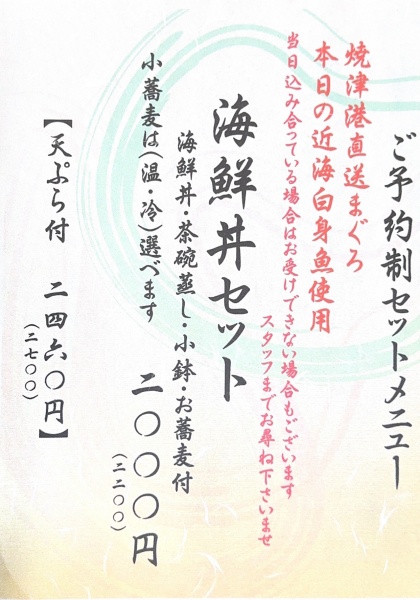 ご予約制セットメニュー
焼津港直送まぐろ
本日の近海白身魚使用
当日込み合っている場合はお受けできない場合もございます
スタッフまでお尋ね下さいませ
海鮮丼セット
海鮮丼・茶碗蒸し・小鉢・お蕎麦付
小蕎麦は(温・冷)選べます
二〇〇〇円
(二二〇〇)
【天ぷら付 二四六〇円】
(二七〇〇)